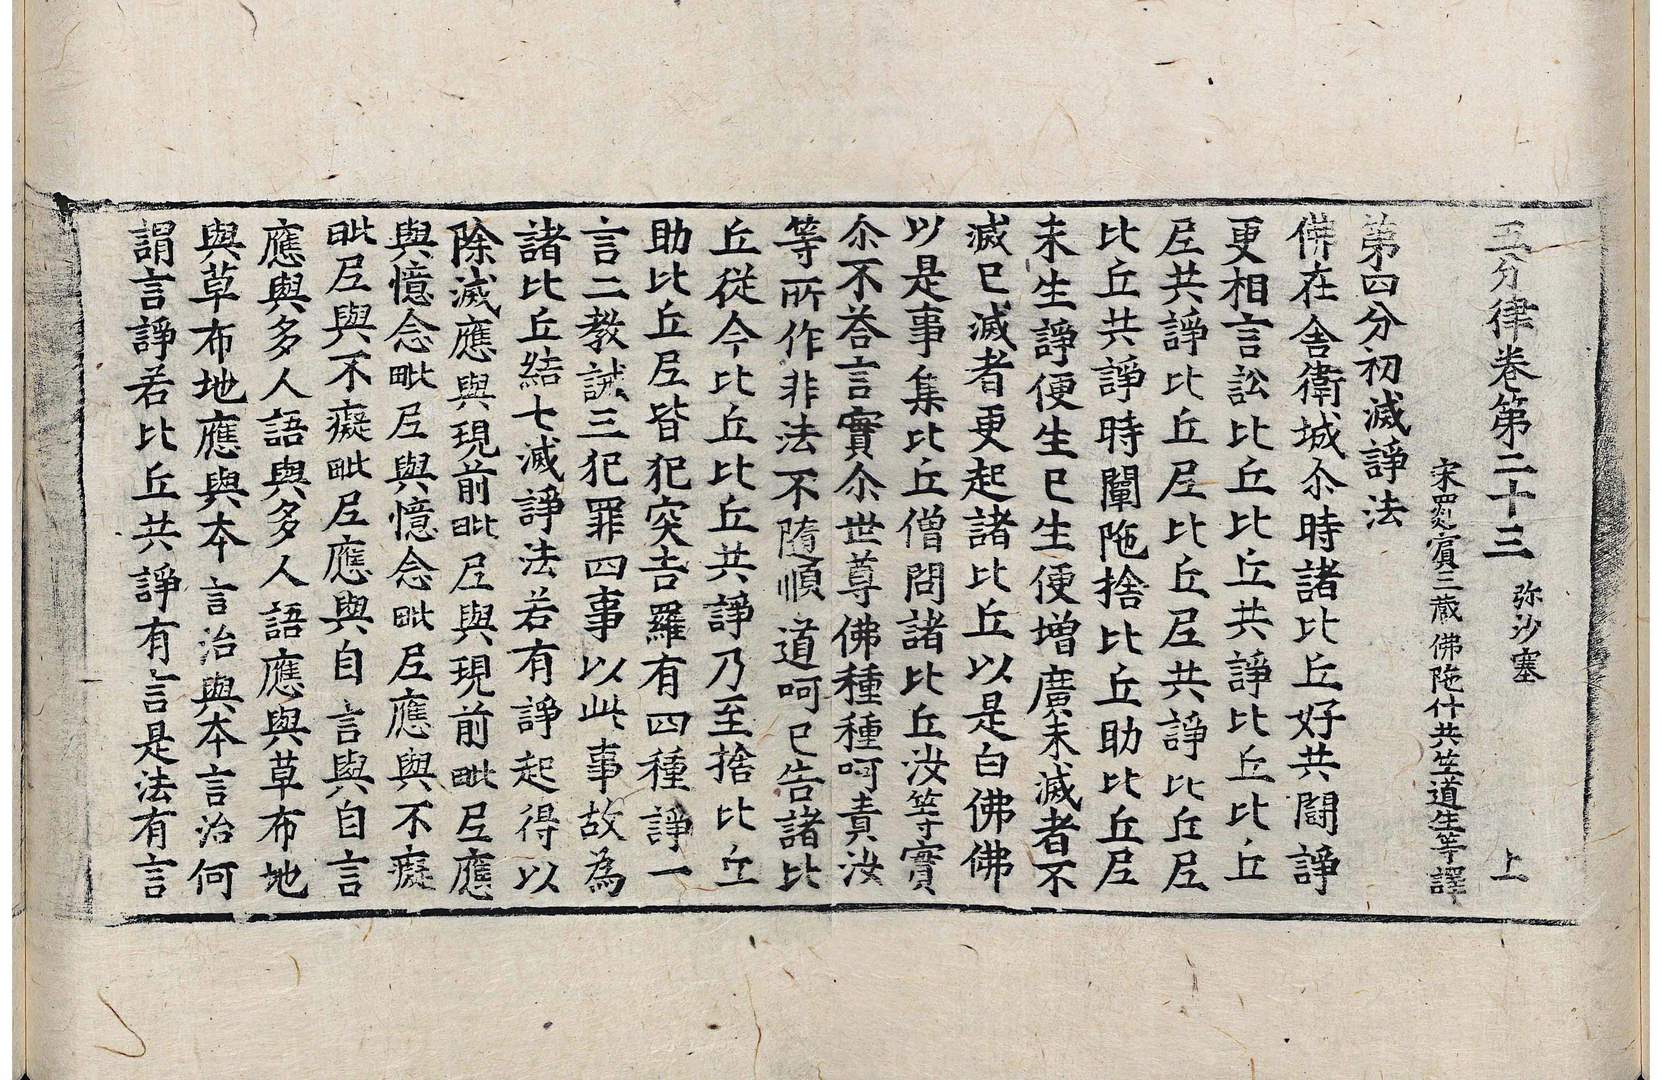 五分律卷第二十三 弥沙塞 上
宋罽賓三藏佛陁什共竺道生等譯
第四分初滅諍法
佛在舍衛城尒時諸比丘好共鬪諍
更相言訟比丘比丘共諍比丘比丘
尼共諍比丘尼比丘尼共諍比丘尼
比丘共諍時闡陁捨比丘助比丘尼
未生諍便生已生便增廣未滅者不
滅已滅者更起諸比丘以是白佛佛
以是事集比丘僧問諸比丘汝等實
尒不荅言實尒世尊佛種種呵責汝
等所作非法不隨順道呵已告諸比
丘從今比丘比丘共諍乃至捨比丘
助比丘尼皆犯突吉羅有四種諍一
言二教誡三犯罪四事以此事故為
諸比丘結七滅諍法若有諍起得以
除滅應與現前毗尼與現前毗尼應
與憶念毗尼與憶念毗尼應與不癡
毗尼與不癡毗尼應與自言與自言
應與多人語與多人語應與草布地
與草布地應與本言治與本言治何
謂言諍若比丘共諍有言是法有言